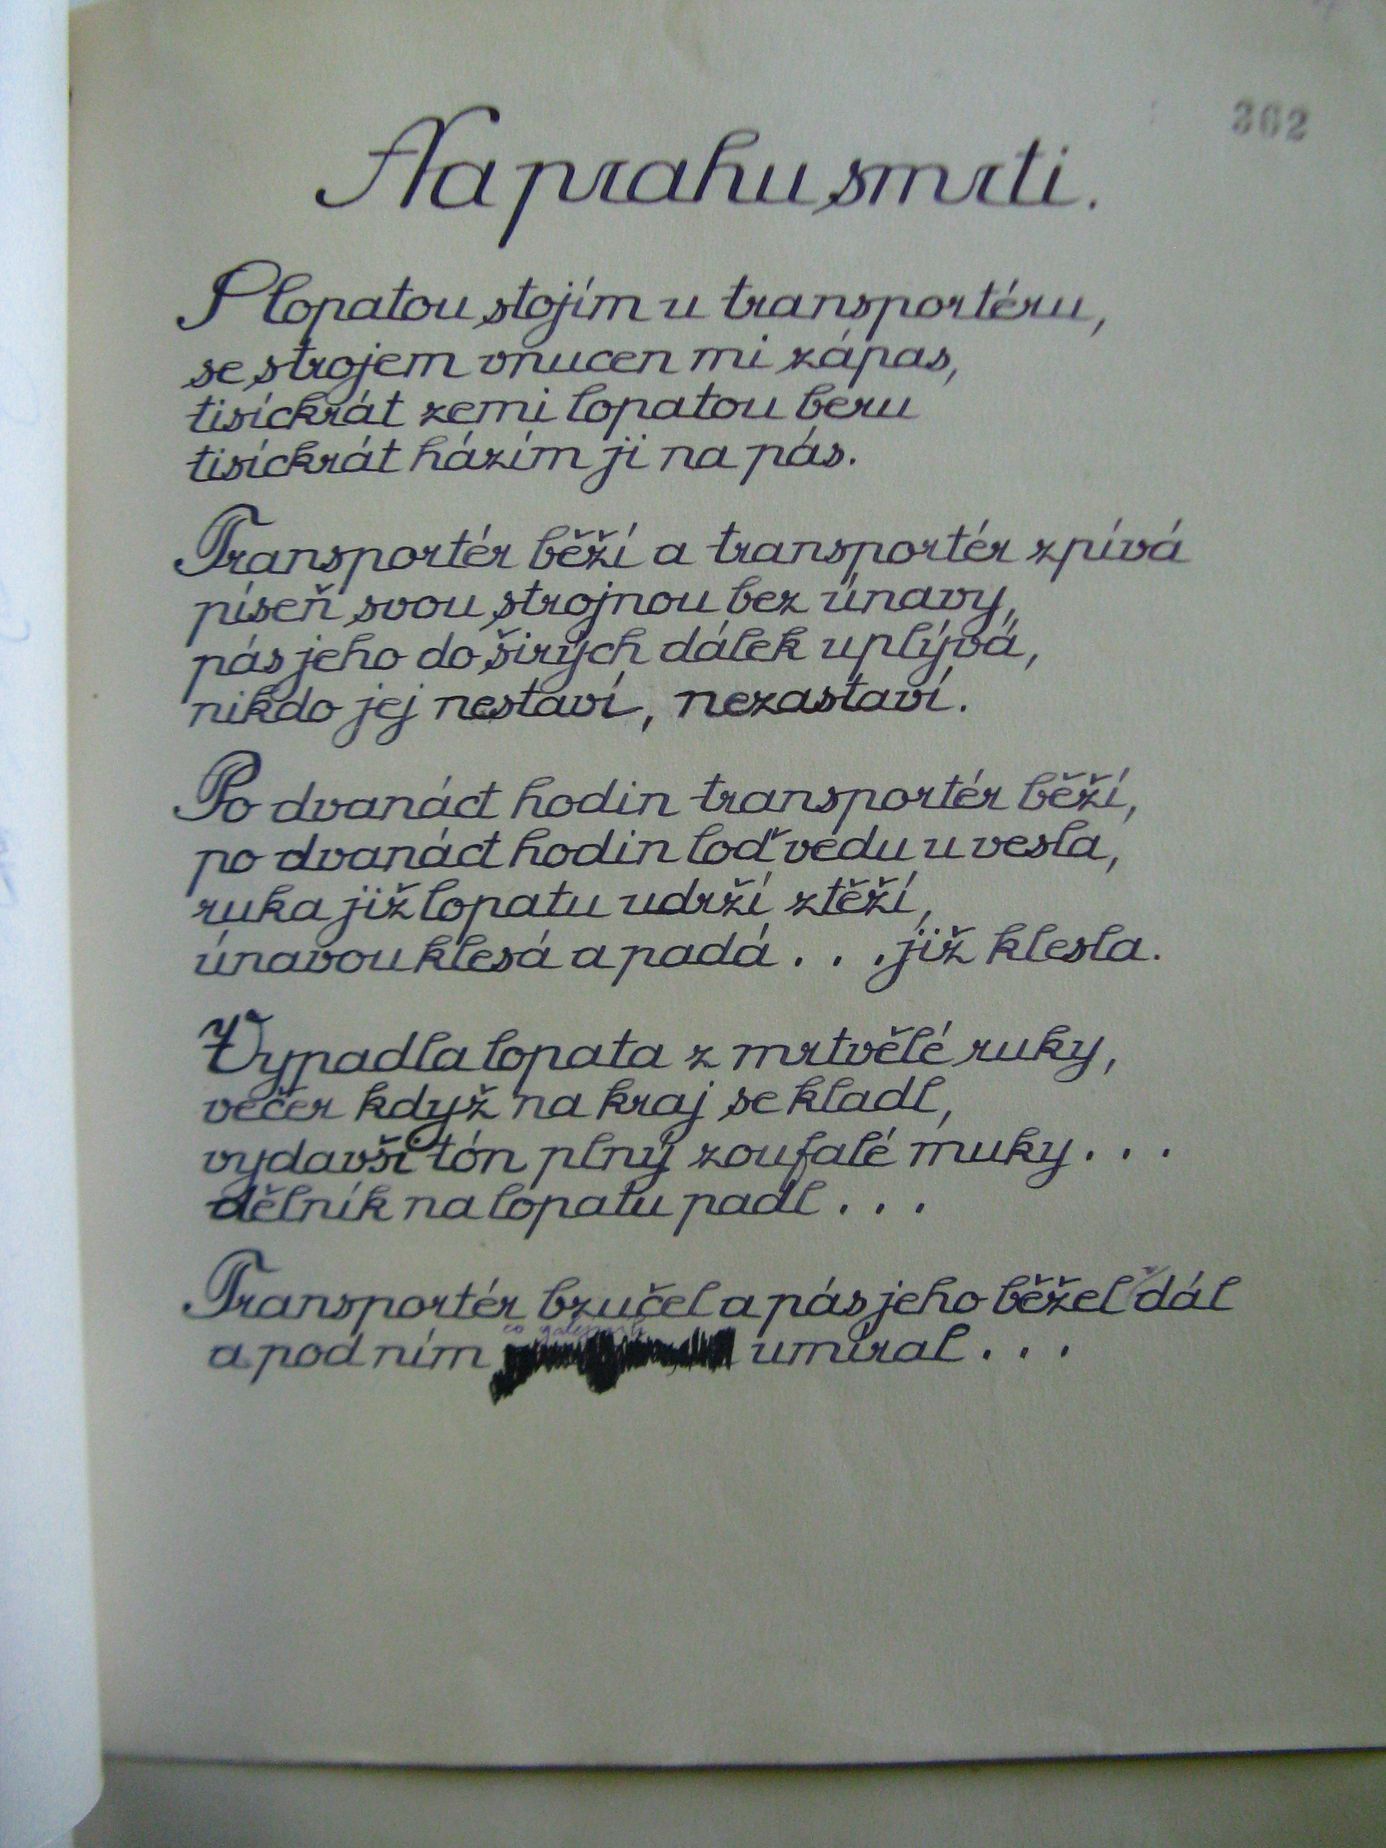 362
Na prahu smrti.
S lopatou stojím u transportéru,
se strojem vnucen mi zápas,
tisíckrát zemi lopatou beru
tisíckrát házím ji na pás.
Transportér běží a transportér zpívá
píseň svou strojnou bez únavy,
pás jeho do širých dálek uplývá,
nikdo jej nestaví, nezastaví.
Po dvanáct hodin transportér běží,
po dvanáct hodin loď vedu u vesla,
ruka již lopatu udrží ztěží,
únavou klesá a padá . . . již klesla.
Vypadla lopata z mrtvělé ruky,
večer když na kraj se kladl,
vydavši tón plný zoufalé muky . . .
dělník na lopatu padl . . .
Transportér bzučel a pás jeho běžel dál
co galejník
a pod ním umíral . . .